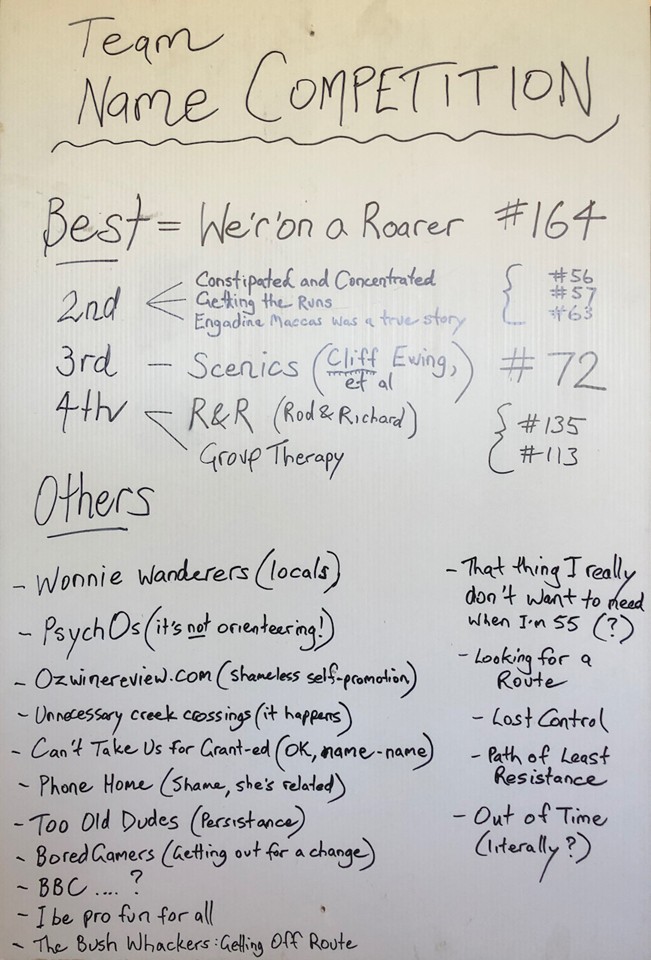 Team
Name COMPETITION
Best = We'r'on a Roarer #164
2nd
Constipated and Concentrated #56
Getting the Runs #57
Engadine Maccas was a true story #63
3rd - Scenics (Cliff Ewing, et al) #72
4th - R&R (Rod & Richard) #135
Group Therapy #113
Others
- Wonnie Wanderers (locals)
- PsychOs (it's not orienteering!)
- Ozwinereview.com (shameless self-promotion)
- Unnecessary creek crossings (it happens)
- Can't Take Us for Grant-ed (OK, name-name)
- Phone Home (Shame, she's related)
- Too Old Dudes (Persistance)
- Bored Gamers (Getting out for a change)
- BBC .... ?
- I be pro fun for all
- The Bush Whackers: Getting Off Route
- That thing I really
don't want to need
when I'm 55 (?)
- Looking for a
Route
- Lost Control
- Path of Least
Resistance
- Out of Time
(literally?)